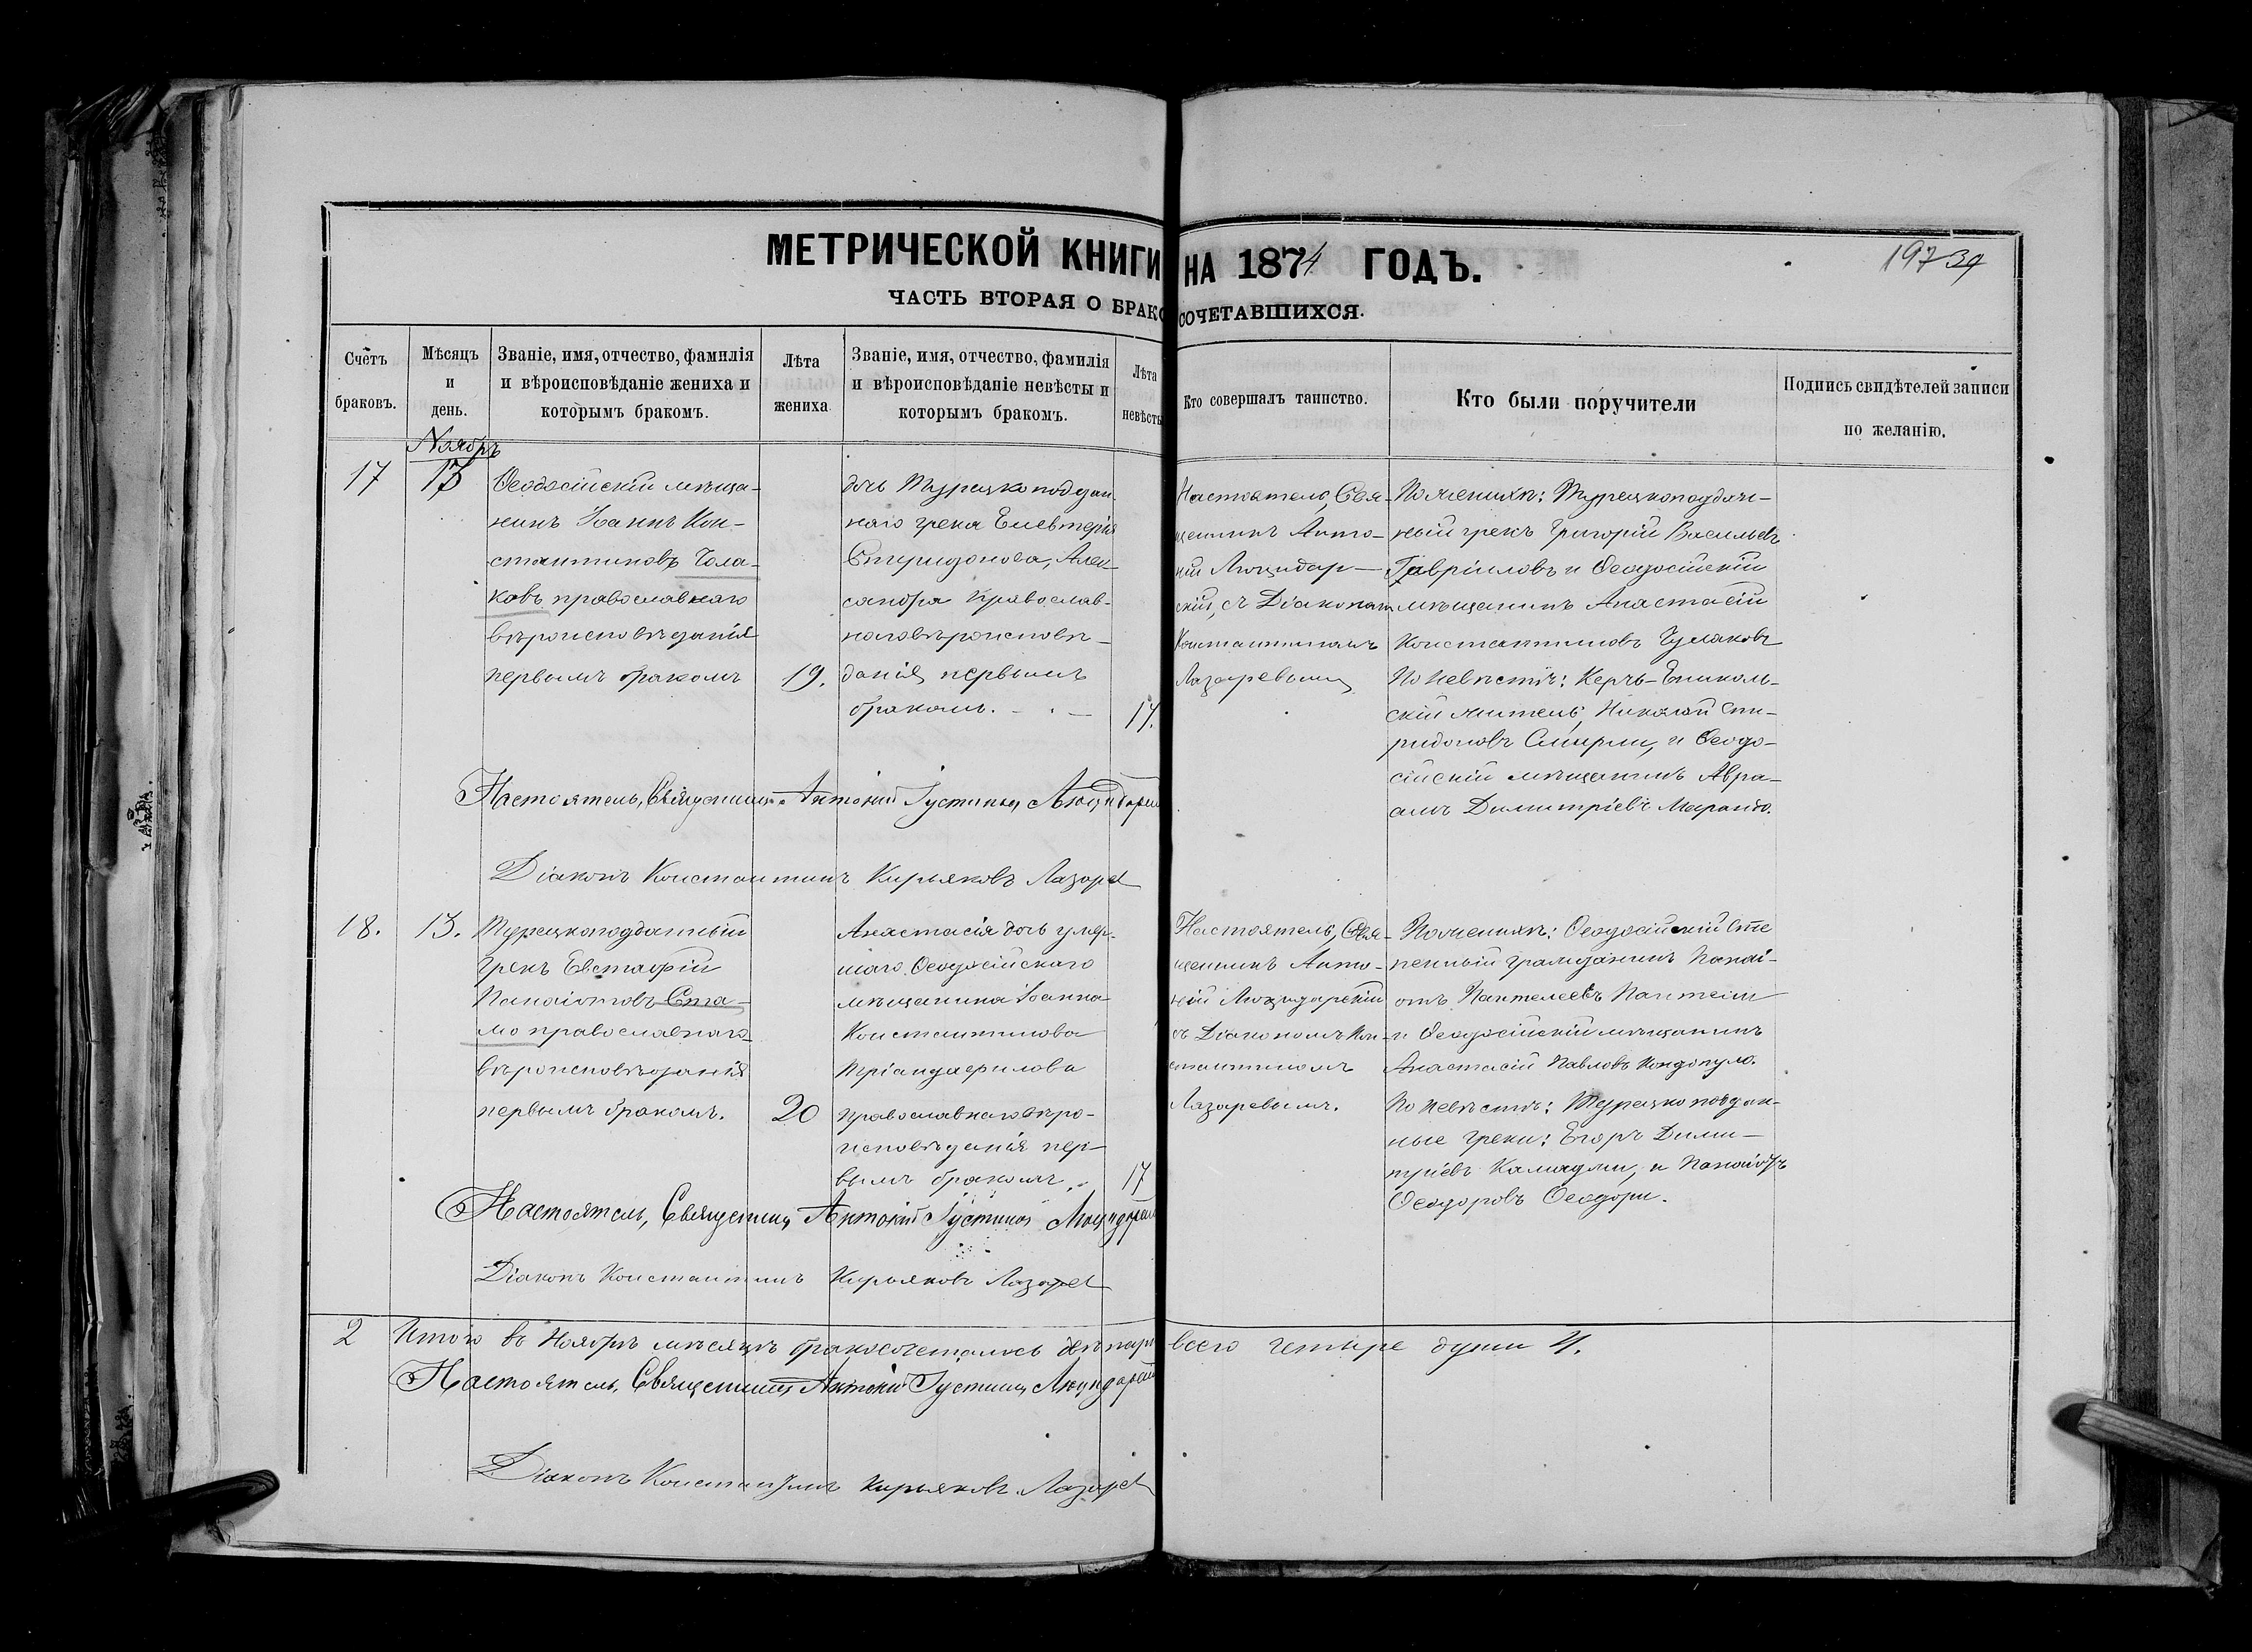 МЕТРИЧЕСКОЙ КНИГИ НА 1874 ГОДЪ.
197 39
ЧАСТЬ ВТОРАЯ О БРАКОСОЧЕТАВШИХСЯ.
Счетъ браковъ.
Мѣсяцъ и день.
Званіе, имя, отчество, фамилія и вѣроисповѣданіе жениха и которымъ бракомъ.
Лѣта жениха
Званіе, имя, отчество, фамилія и вѣроисповѣданіе невѣсты и которымъ бракомъ.
Лѣта невѣсты
Кто совершалъ таинство.
Кто были поручители
Подпись свидѣтелей записи по желанію.
Ноябрь
17
13
Ѳеодосійскій мѣща-
нинъ Іоаннъ Кон-
стантиновъ Чола-
ковъ православнаго
вѣроисповѣданія
первымъ бракомъ
19.
дочь Турецкоподдан-
наго грека Елевтерія
Спиридонова, Алек-
сандра православ-
наго вѣроисповѣ-
данія первымъ
бракомъ.
17.
Настоятель, Свя-
щенникъ Анто-
ній Люцидар-
скій, съ Діакономъ
Константиномъ
Лазаревымъ
По женихѣ: Турецкоподдан-
ный грекъ Григорій Васильевъ
Гавріиловъ и Ѳеодосійскій
мѣщанинъ Анастасій
Константиновъ Чулаковъ
По невѣстѣ: Керчь-Ениколь-
скій житель, Николай Спи-
ридоновъ и Ѳеодо-
сійскій мѣщанинъ Авра-
амъ Димитріевъ
Настоятель, Священникъ Антоній Густинъ
Діаконъ Константинъ Кирьяковъ Лазарев
18.
13.
Турецкоподданный
грекъ Евстафій
Панаіотовъ Ста-
мо православнаго
вѣроисповѣданія
первымъ бракомъ.
20
Анастасія дочь умер-
шаго Ѳеодосійскаго
мѣщанина Іоанна
Константинова
Тріандафилова
православнаго вѣро-
исповѣданія пер-
вымъ бракомъ.
17
Настоятель, Свя-
щенникъ Анто-
ній Люцидарскій
съ Діакономъ Кон-
стантиномъ
Лазаревымъ.
По женихѣ: Ѳеодосійскій
гражданинъ Панаі-
отъ Пантелеевъ
и Ѳеодосійскій мѣщанинъ
Анастасій Павловъ Кондопуло.
По невѣстѣ: Турецкоподдан-
ные греки: Егоръ Дими-
тріевъ и Панаіотъ
Ѳеодоровъ Ѳеодори.
Настоятель, Священникъ Антоній Густинъ
Діаконъ Константинъ Кирьяковъ Лазарев
2 Итого въ Ноябрѣ мѣсяцѣ бракосочеталось двѣ пары всего четыре души 4.
Настоятель, Священникъ Антоній Густинъ
Діаконъ Константинъ Кирьяковъ Лазарев